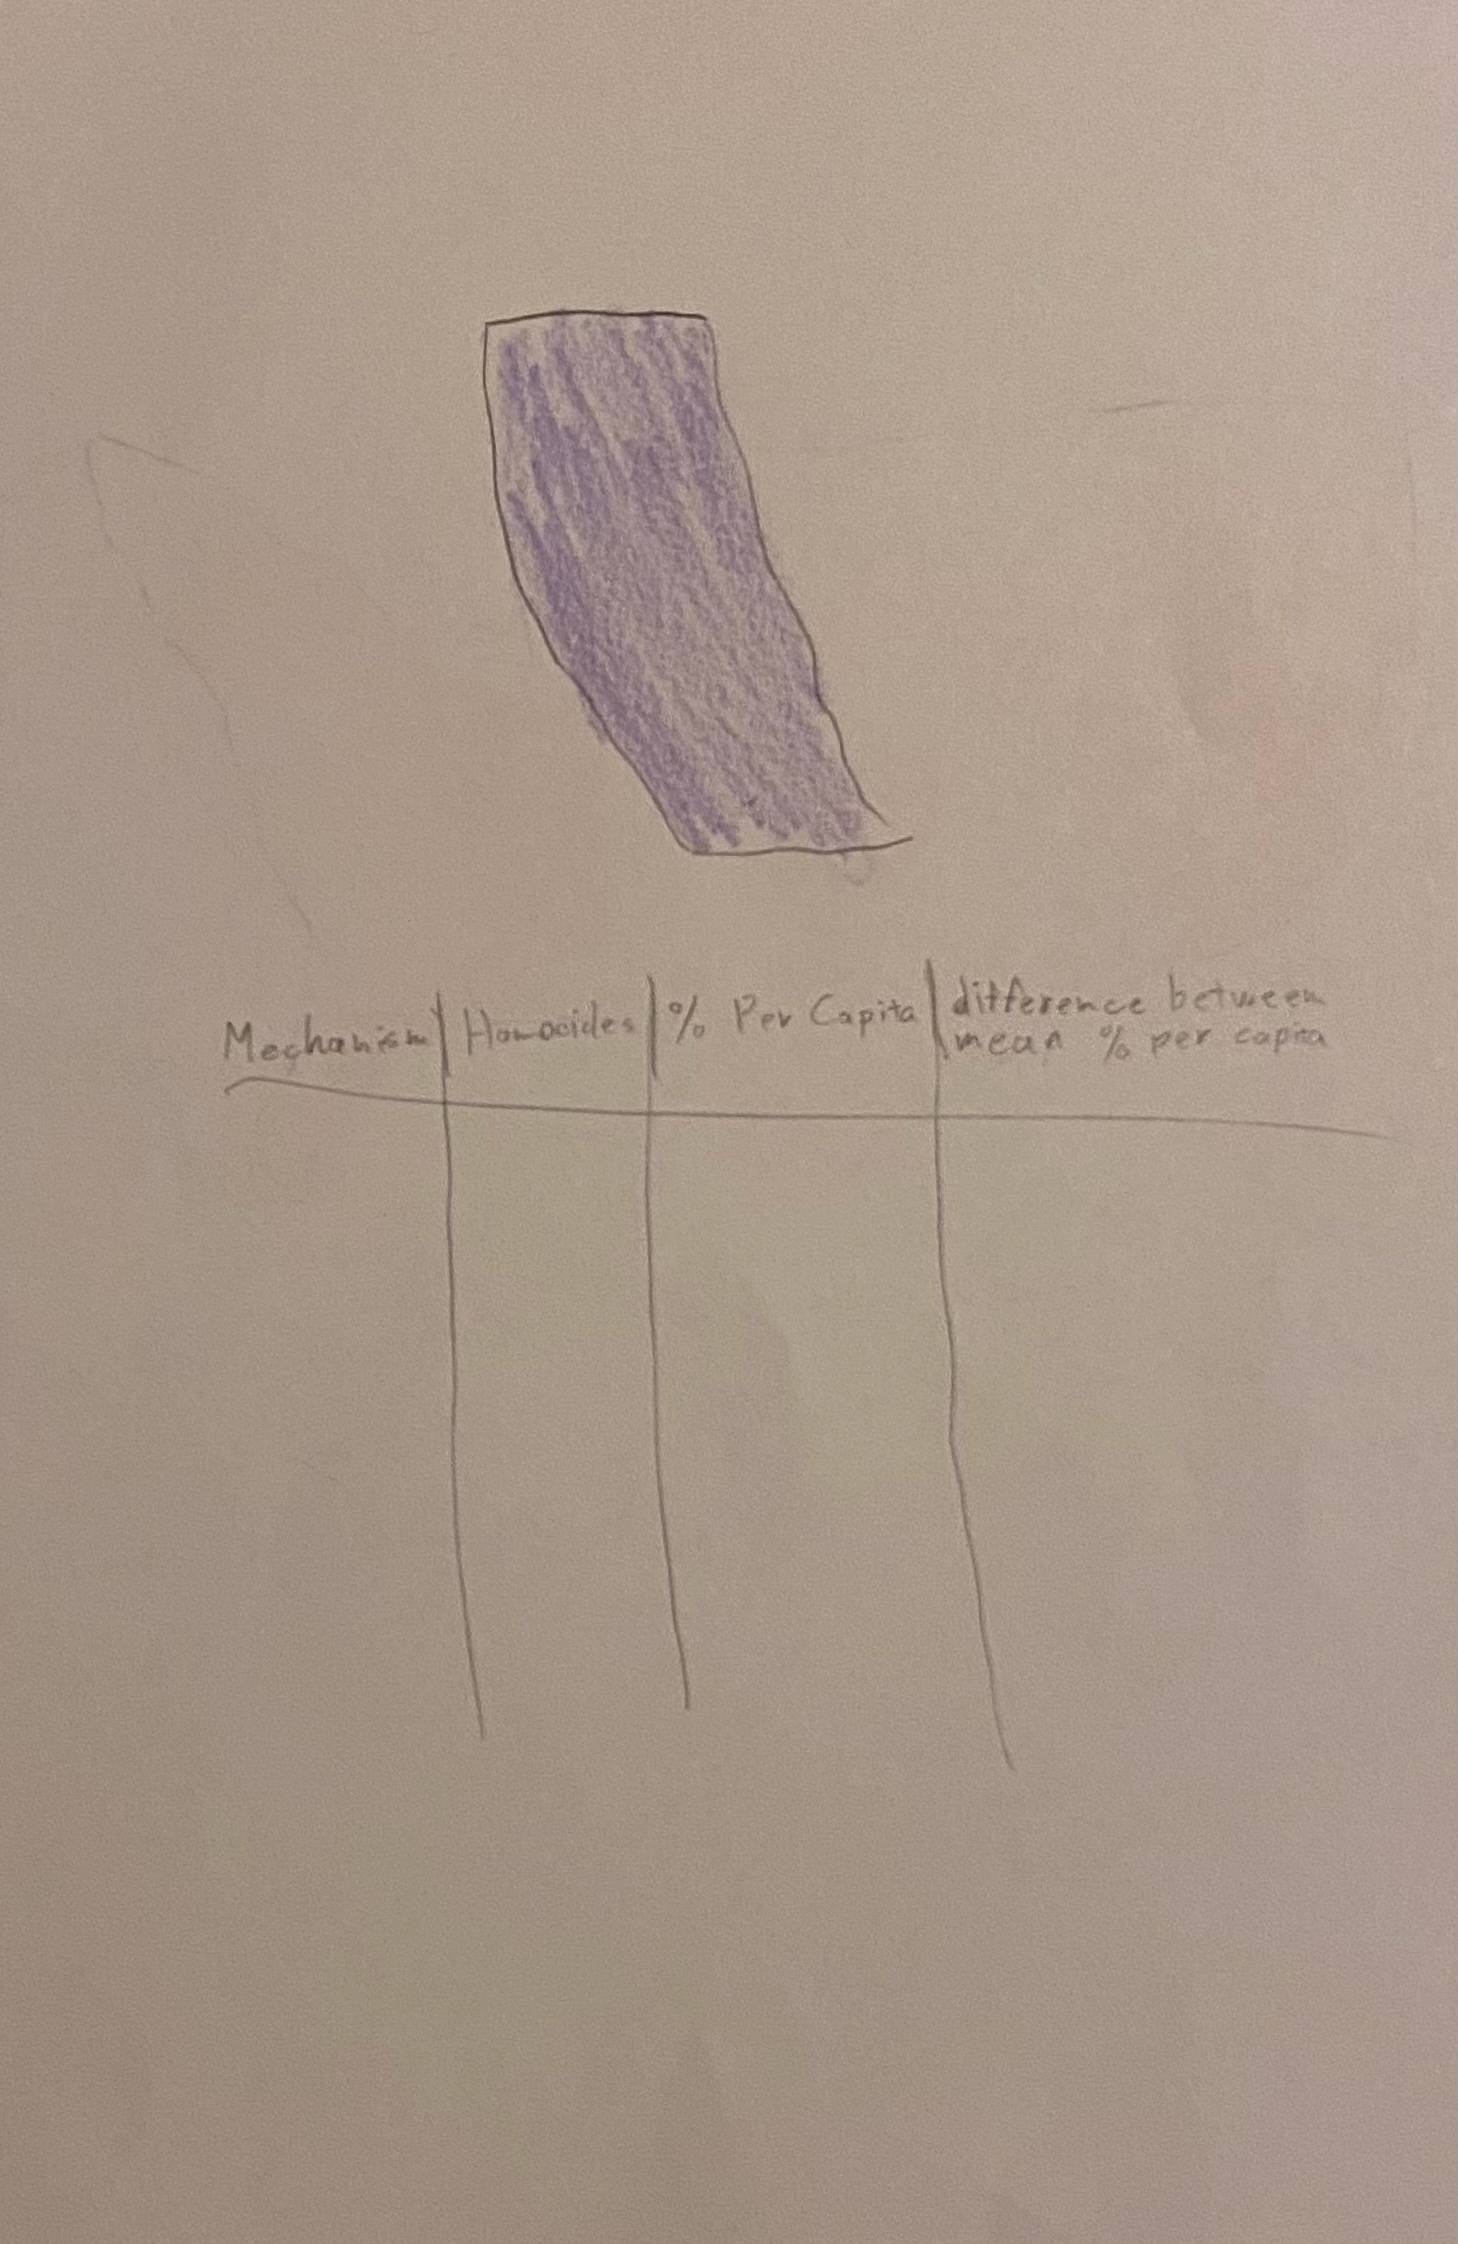 Mechanism Homocides % Per Capita difference between
mean % per capita